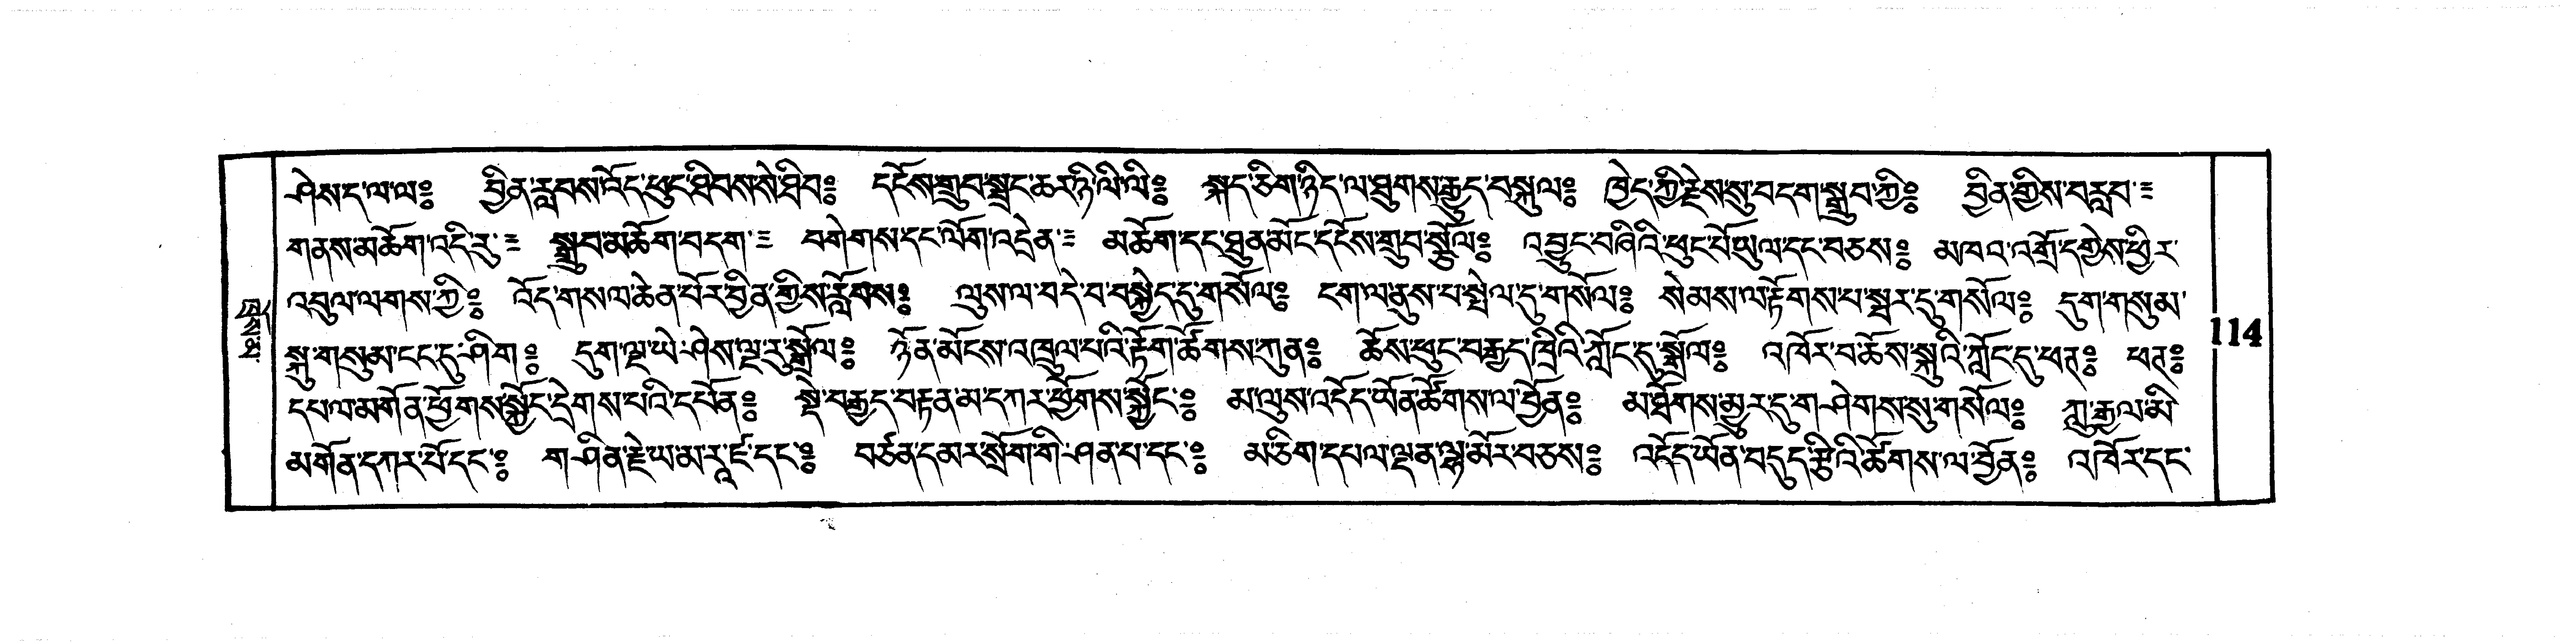 ཤེས་ད་ལ་ལ༔ བྱིན་རླབས་འོད་ཕུང་ཐིབས་སེ་ཐིབ༔ དངོས་གྲུབ་སྦྲང་ཆར་ཏི་ལི་ལི༔ སྐད་ཅིག་ཉིད་ལ་ཐུགས་རྒྱུད་བསྐུལ༔ ཁྱེད་ཀྱི་རྗེས་སུ་བདག་སྒྲུབ་ཀྱི༔ བྱིན་གྱིས་བརླབ་༔
གནས་མཆོག་འདི་རུ་༔ སྒྲུབ་མཆོག་བདག་༔ བགེགས་དང་ལོག་འདྲེན་༔ མཆོག་དང་ཐུན་མོང་དངོས་གྲུབ་སྩོལ༔ འབྱུང་བཞིའི་ཕུང་པོ་ཡུལ་དང་བཅས༔ མཁའ་འགྲོ་དགྱེས་ཕྱིར་
འབུལ་ལགས་ཀྱི༔ འོད་གསལ་ཆེན་པོར་བྱིན་གྱིས་རློབས༔ ལུས་ལ་བདེ་བ་བསྐྱེད་དུ་གསོལ༔ ངག་ལ་ནུས་པ་སྤེལ་དུ་གསོལ༔ སེམས་ལ་རྟོགས་པ་སྦར་དུ་གསོལ༔ དུག་གསུམ་
སྐུ་གསུམ་ངང་དུ་ཤིག༔ དུག་ལྔ་ཡེ་ཤེས་ལྔ་རུ་སྒྲོལ༔ ཉོན་མོངས་འཁྲུལ་པའི་རྟོག་ཚོགས་ཀུན༔ ཆོས་ཕུང་བརྒྱད་ཁྲིའི་ཀློང་དུ་སྒྲོལ༔ འཁོར་བ་ཆོས་སྐུའི་ཀློང་དུ་ཕཊ༔ ཕཊ༔
དཔལ་མགོན་ཕྱོགས་སྐྱོང་དྲེགས་པའི་དཔོན༔ སྡེ་བརྒྱད་བརྟན་མ་དཀར་ཕྱོགས་སྐྱོང་༔ མ་ལུས་འདོད་ཡོན་ཚོགས་ལ་བྱོན༔ མ་ཐོགས་མྱུར་དུ་གཤེགས་སུ་གསོལ༔ ཀླུ་རྒྱལ་མི་
མགོན་དཀར་པོ་དང་༔ གཤིན་རྗེ་ཡ་མ་རཱ་ཛ་དང་༔ བཙན་དམར་སྲོག་གི་ཤན་པ་དང་༔ མ་ཅིག་དཔལ་ལྡན་ལྷ་མོར་བཅས༔ འདོད་ཡོན་བདུད་རྩིའི་ཚོགས་ལ་བྱོན༔ འཁོར་དང་
114